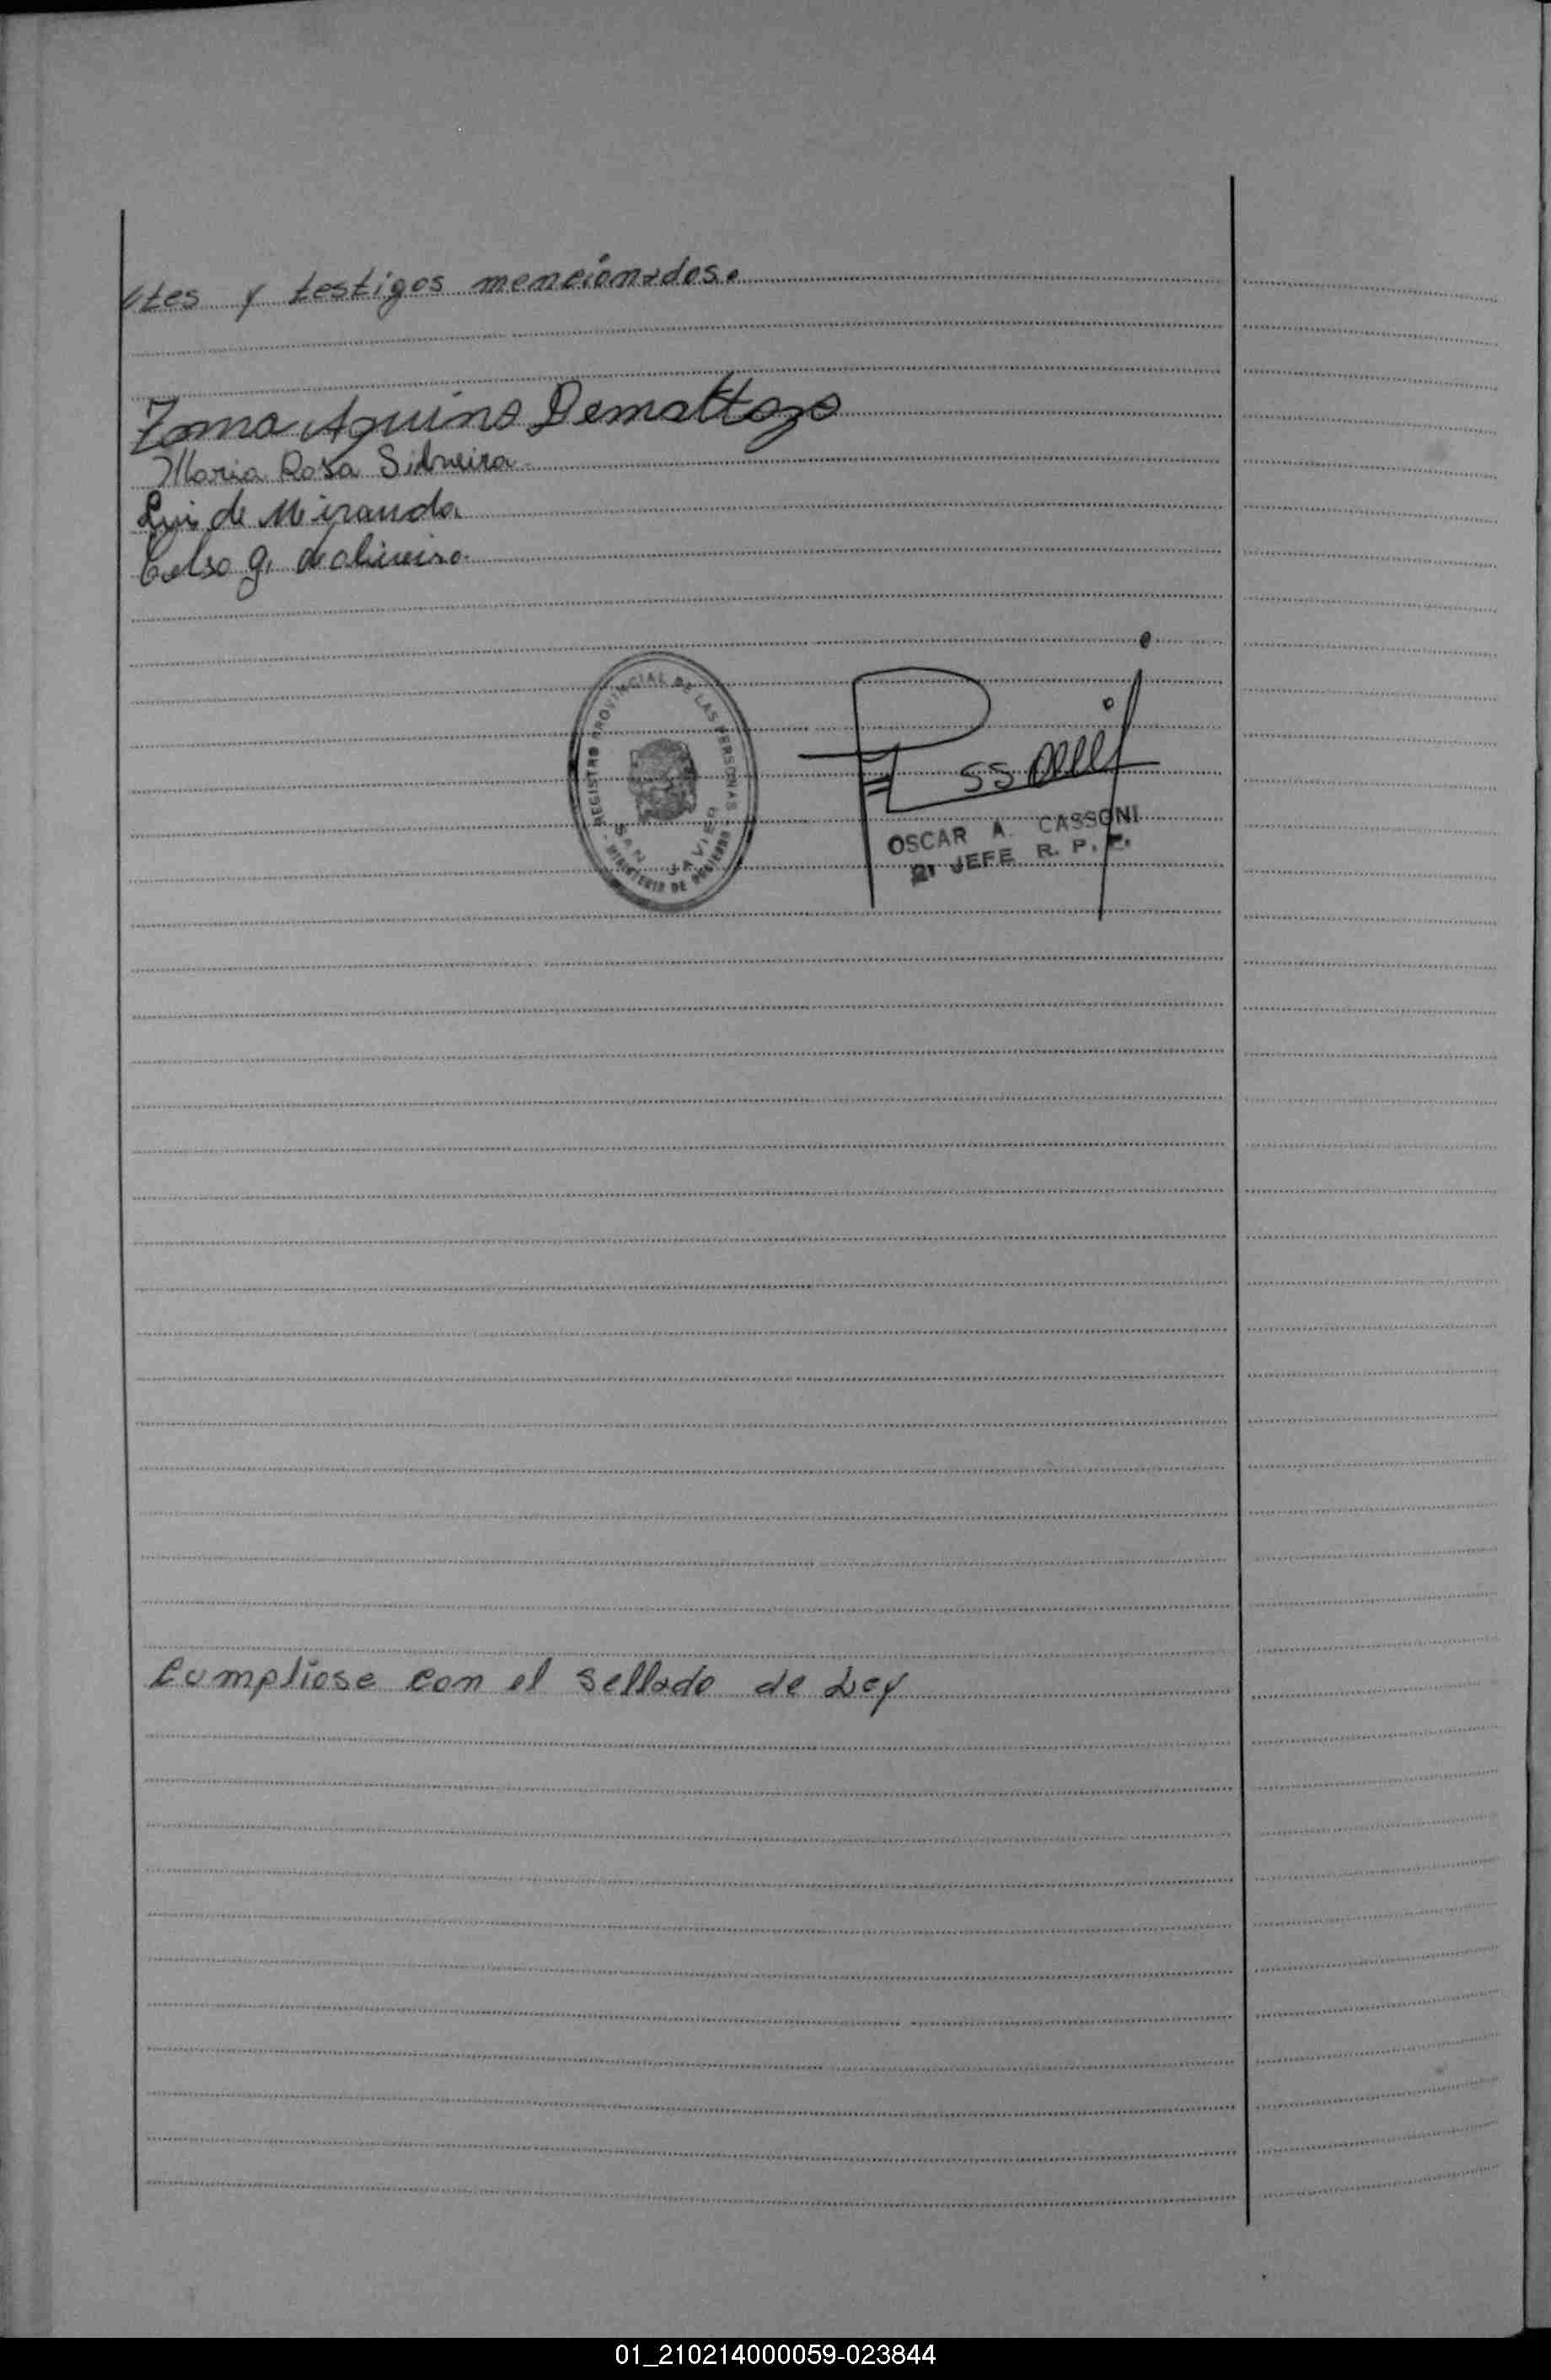 tes y testigos mencionados.
Toma Aquino Demattozo
Maria Rosa Silveira
Luis de Miranda
Celso G. de oliveira
REGISTRO PROVINCIAL DE LAS PERSONAS
SAN JAVIER
MINISTERIO DE GOBIERNO
OSCAR A. CASSONI
2º JEFE R. P. P.
Cumpliose con el sellado de Ley
01_210214000059-023844